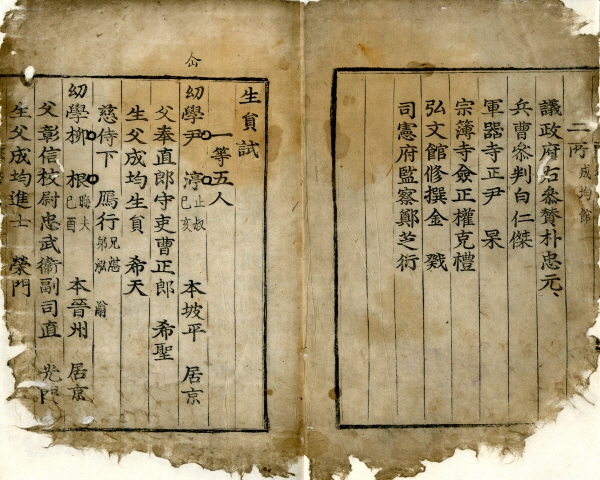 二所 成均館
議政府右參賛朴忠元
兵曹參判白仁傑
軍器寺正尹 杲
宗簿寺僉正權克禮
弘文館修撰金 戣
司憲府監察鄭芝衍
生員試
一等五人
幼學尹 渟 止叔 己亥 本坡平 居京
父奉直郎守吏曹正郎 希聖
生父成均生員 希天
慈侍下 鴈行 兄湛 弟泓 瀚
幼學柳 根 晦夫 己酉 本晉州 居京
父彰信校尉忠武衛副司直 光門
生父成均進士 榮門